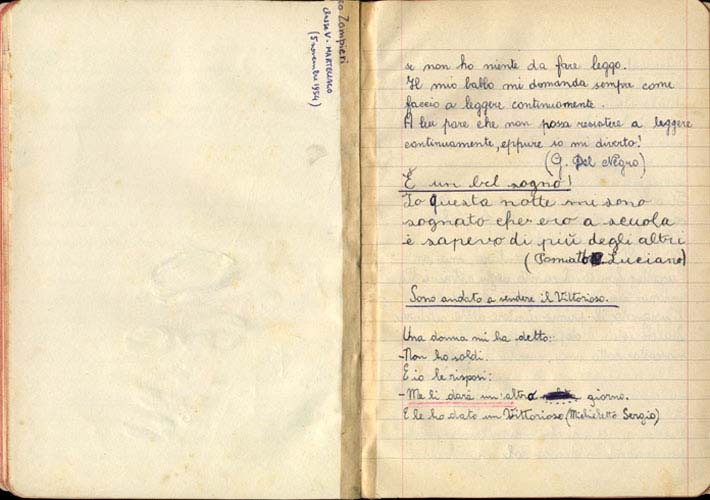 co Zampieri
classe V - MARTELLAGO
(5 novembre 1954)
se non ho niente da fare leggo.
Il mio babbo mi domanda sempre come
faccio a leggere continuamente.
A lui pare che non possa resistere a leggere
continuamente, eppure io mi diverto!
(G. Del Negro)
È un bel sogno!
Io questa notte mi sono
sognato che ero a scuola
e sapevo di più degli altri
Luciano)
Sono andato a vendere il Vittorioso.
Una donna mi ha detto:
-Non ho soldi.
E io le risposi:
-Me li darà un altro giorno.
E le ho dato un Vittorioso (Micheletto Sergio)